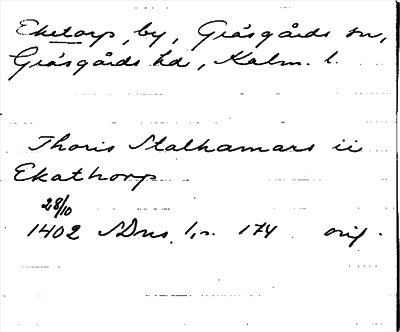 Eketorp, by, Gräsgårds sn,
Gräsgårds hd, Kalm. l.
Thoris Stalhamars ii
Ekathorp
28/10
1402 SDns 1, s. 174 orig.